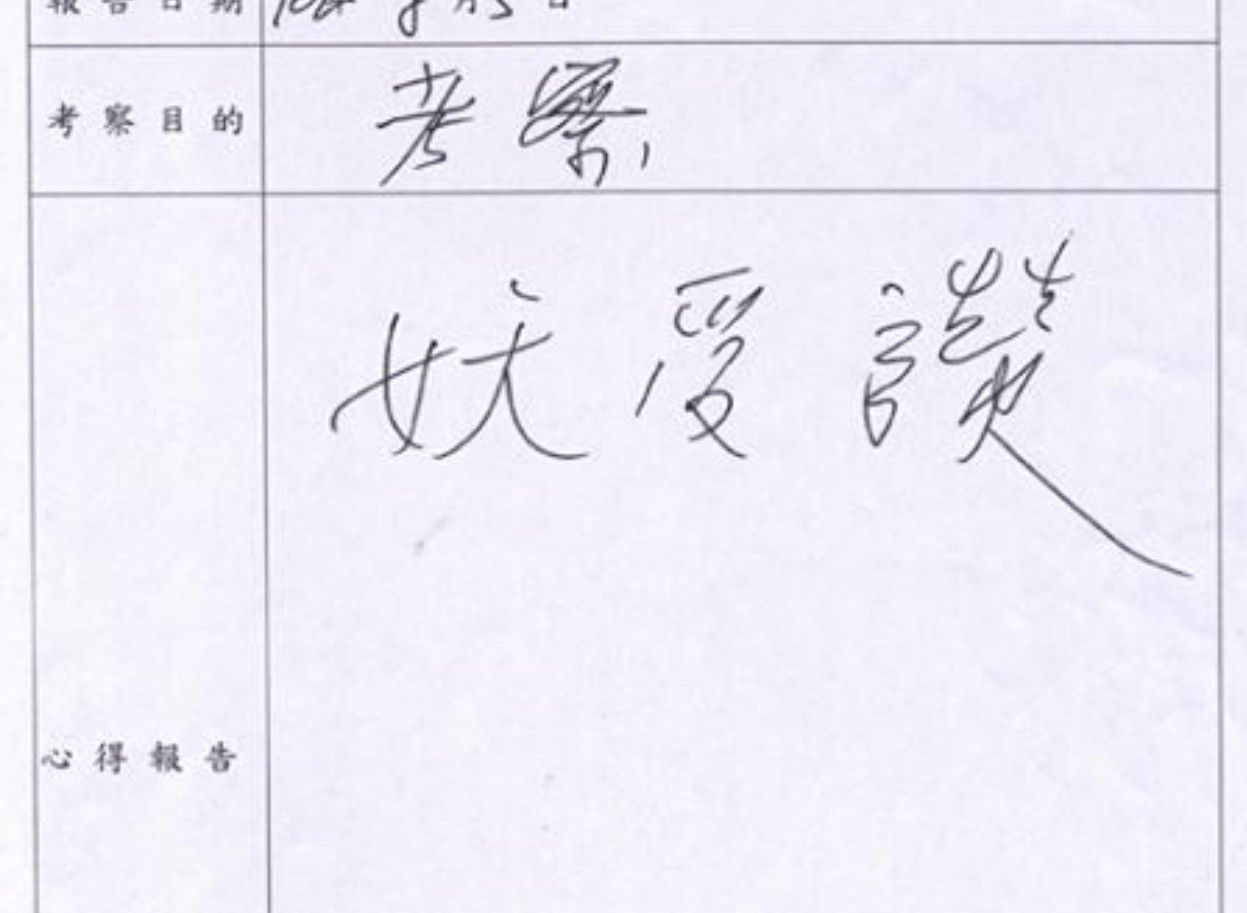 報告日期
考察目的 考察
妖受讚
心得報告